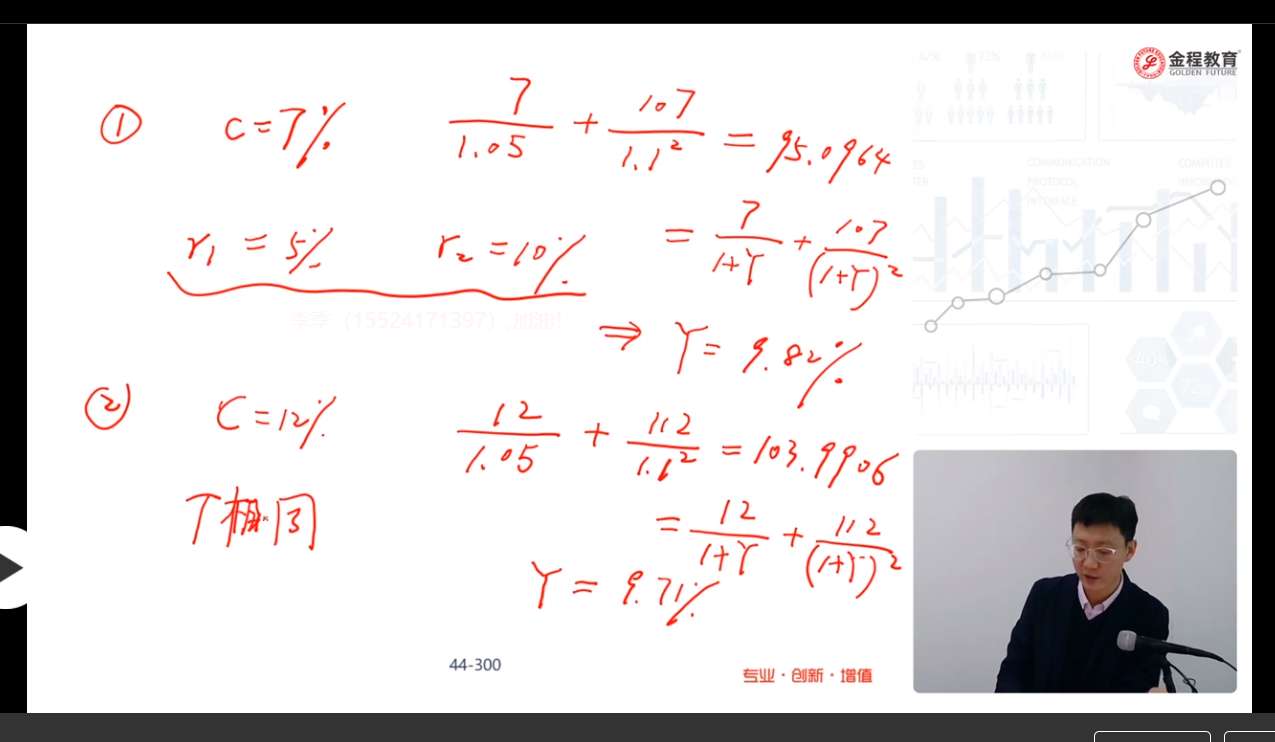 金程教育
GOLDEN FUTURE
① C=7% 7/1.05 + 107/1.1² = 95.0964
r₁ = 5% r₂ = 10% = 7/(1+Y) + 107/(1+Y)²
李季（15524171397）,加油!
⇒ Y = 9.82%
② C=12% 12/1.05 + 112/1.1² = 103.9906
T相同 = 12/(1+Y) + 112/(1+Y)²
Y = 9.71%
44-300
专业·创新·增值